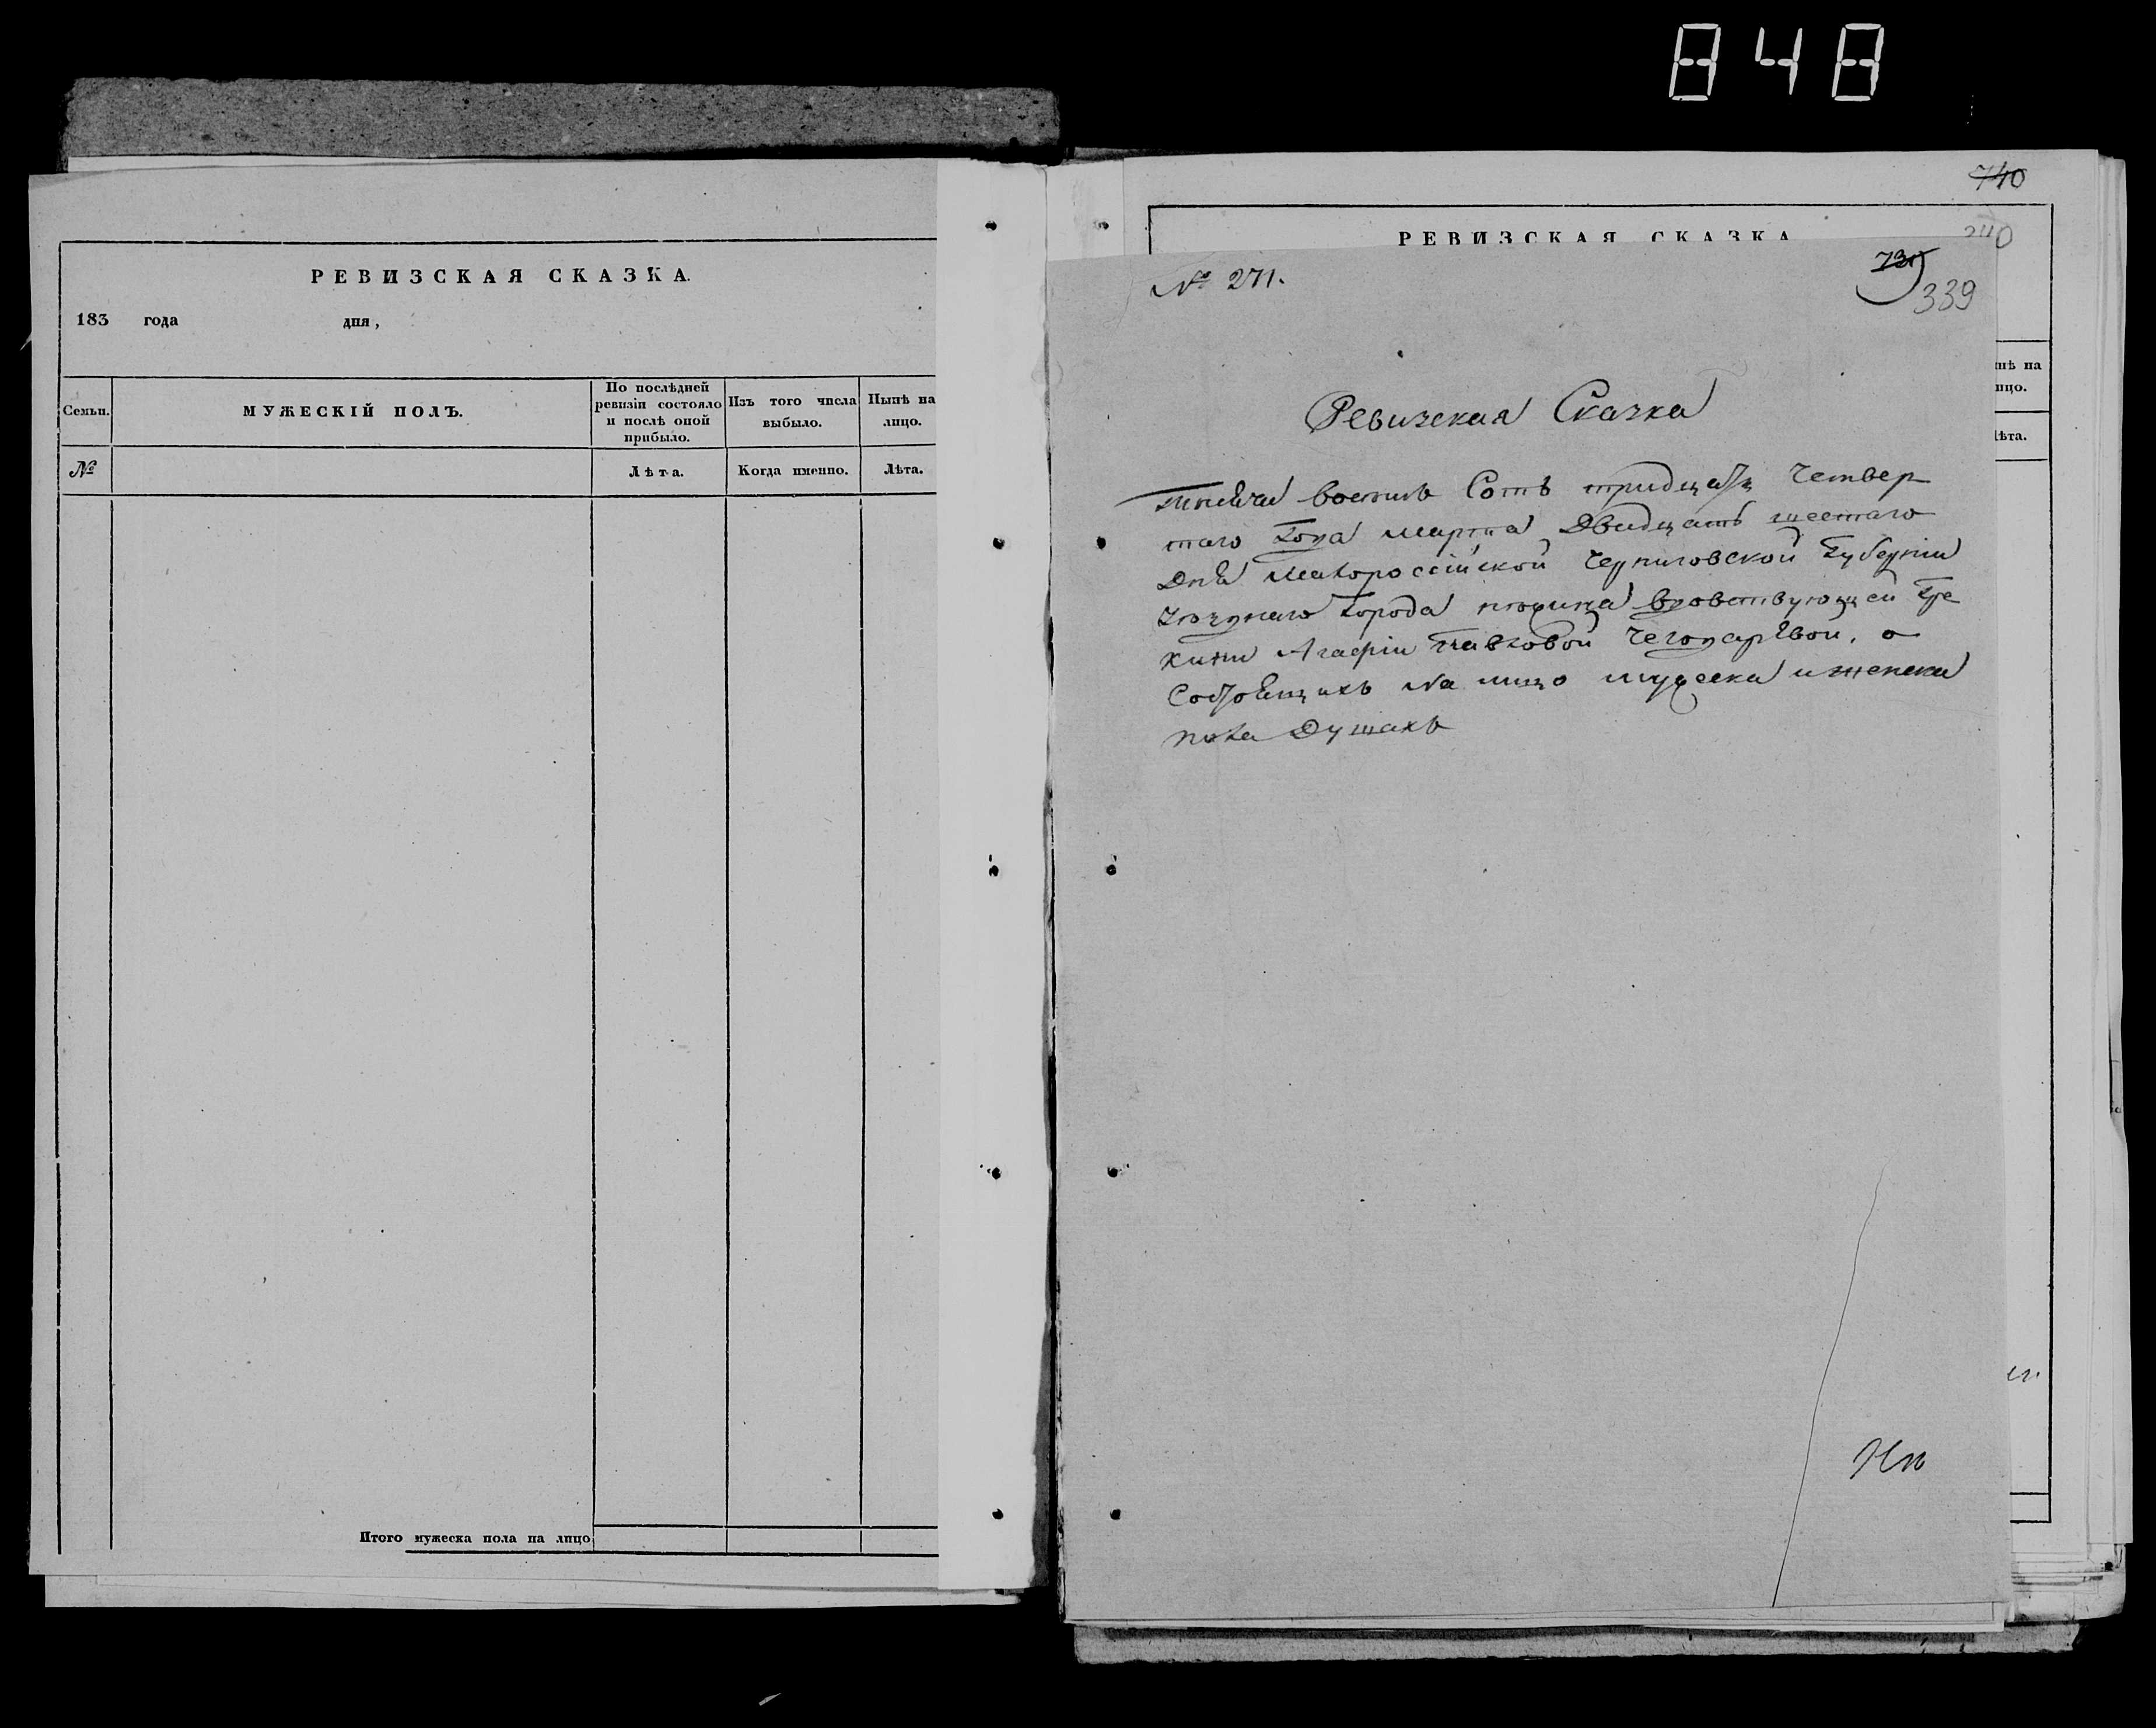 848
РЕВИЗСКАЯ СКАЗКА.
183 года дня,
Семьи.
МУЖЕСКІЙ ПОЛЪ.
По послѣдней
ревизіи состояло
и послѣ оной
прибыло.
Изъ того числа
выбыло.
Нынѣ на
лицо.
№
Лѣта.
Когда именно.
Лѣта.
Итого мужеска пола на лицо
740
РЕВИЗСКАЯ СКАЗКА
240
нѣ на
ицо.
ѣта.
№ 271.
339
Ревизская Сказка
Тысяча восемь Сотъ тридцать Четвер
таго Года Марта Двадцать шестаго
Дня Малороссійской Черниговской Губерніи
Уѣзднаго Города Нѣжина вдовствующей Гре
кини Агафіи Павловой Чегодаревой, о
Состоящихъ На лицо мужеска и женска
пола Душахъ